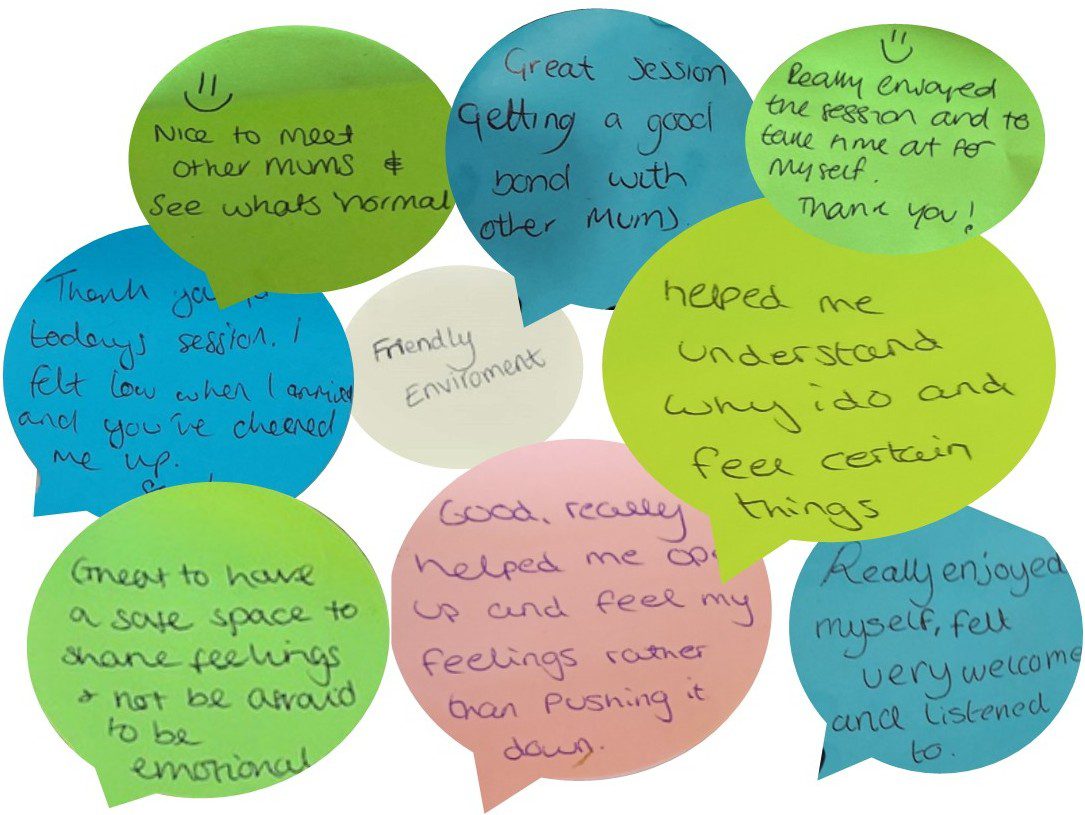 Nice to meet
other mums &
See whats 'normal
Great session
Getting a good
bond with
other Mums.
Really enjoyed
the session and to
take time out for
myself.
Thank you!
Thank
todays session. I
felt low when I
and you've cheered
me up.
Friendly
Enviroment
helped me
understand
why i do and
feel certain
things
Great to have
a safe space to
share feelings
+ not be afraid
to be
emotional
Good, really
helped me
up and feel my
feelings rather
than pushing it
down.
Really enjoyed
myself, felt
very welcome
and listened
to.